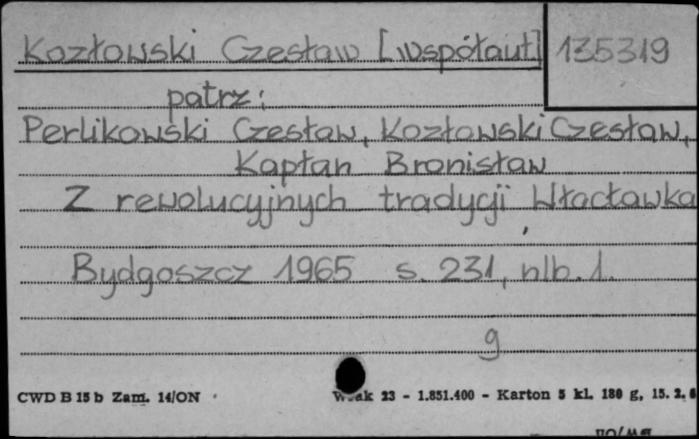 Kozłowski Czesław [współaut] 135319
patrz:
Perlikowski Czesław, Kozłowski Czesław,
Kapłan Bronisław
Z rewolucyjnych tradycji Włocławka
Bydgoszcz 1965 s. 231, nlb. 1.
g
CWD B 15 b Zam. 14/ON - 1.851.400 - Karton 5 kl. 180 g, 15. 2.